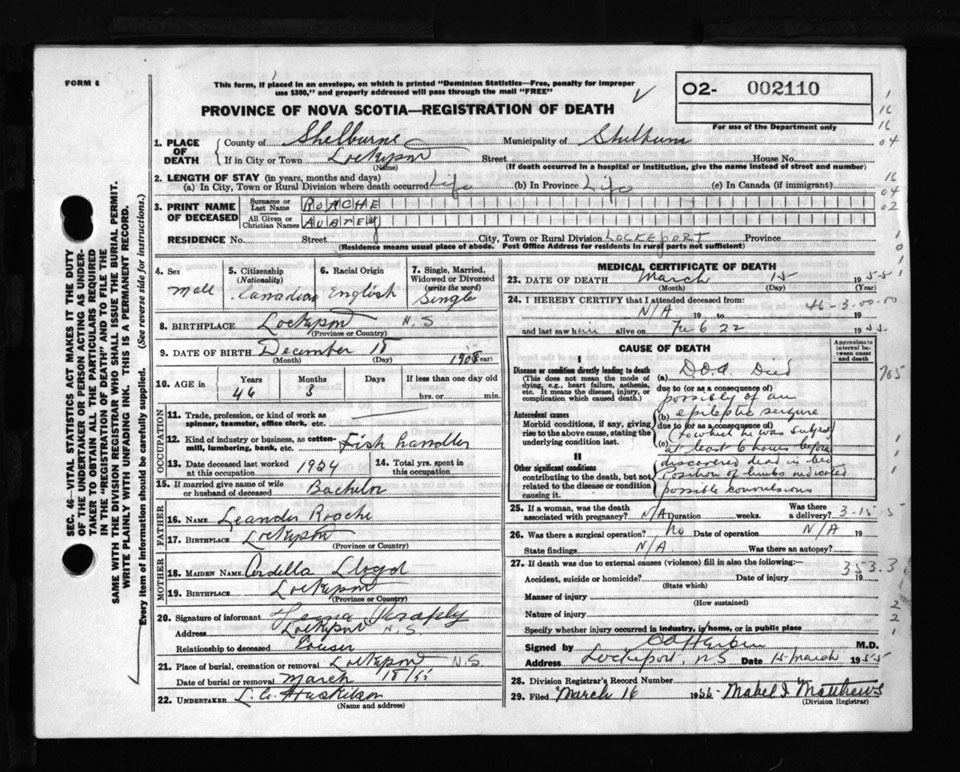 FORM 6
This form, if placed in an envelope, on which is printed "Dominion Statistics—Free, penalty for improper
use $300," and properly addressed will pass through the mail "FREE"
PROVINCE OF NOVA SCOTIA—REGISTRATION OF DEATH
O2- 002110
For use of the Department only
1. PLACE OF DEATH
County of Shelburne Municipality of Shelburne
If in City or Town Lockeport Street House No.
(Name) (If death occurred in a hospital or institution, give the name instead of street and number)
2. LENGTH OF STAY (in years, months and days)
(a) In City, Town or Rural Division where death occurred Life (b) In Province Life (c) In Canada (if immigrant)
3. PRINT NAME OF DECEASED
Surname or Last Name ROACHE
All Given or Christian Names AUBREY
RESIDENCE No. Street City, Town or Rural Division LOCKEPORT Province
(Residence means usual place of abode. Post Office Address for residents in rural parts not sufficient)
4. Sex Male
5. Citizenship (Nationality) Canadian
6. Racial Origin English
7. Single, Married, Widowed or Divorced (write the word) Single
8. BIRTHPLACE Lockeport N.S
(Province or Country)
9. DATE OF BIRTH December 15 1908
(Month) (Day) (Year)
10. AGE in Years 46 Months 3 Days If less than one day old
hrs. or min.
OCCUPATION
11. Trade, profession, or kind of work as
spinner, teamster, office clerk, etc.
12. Kind of industry or business, as cotton-
mill, lumbering, bank, etc. Fish handler
13. Date deceased last worked
at this occupation 1954
14. Total yrs. spent in
this occupation
15. If married give name of wife
or husband of deceased Bachelor
FATHER
16. NAME Leander Roache
17. BIRTHPLACE Lockeport
(Province or Country)
MOTHER
18. MAIDEN NAME Ardella Lloyd
19. BIRTHPLACE Lockeport
(Province or Country)
20. Signature of informant
Address Lockeport N.S
Relationship to deceased Cousin
21. Place of burial, cremation or removal Lockeport N.S.
Date of burial or removal March 18/55
22. UNDERTAKER
(Name and address)
MEDICAL CERTIFICATE OF DEATH
23. DATE OF DEATH March 15 1955
(Month) (Day) (Year)
24. I HEREBY CERTIFY that I attended deceased from: 46-3-00-00
N/A 19 to 19
and last saw him alive on Feb 22 1955
CAUSE OF DEATH
Approximate interval between onset and death
I
Disease or condition directly leading to death
(This does not mean the mode of
dying, e.g., heart failure, asthenia,
etc. It means the disease, injury, or
complication which caused death.)
(a) D.O.A. Died
due to (or as a consequence of)
possibly of an
Antecedent causes
Morbid conditions, if any, giving
rise to the above cause, stating the
underlying condition last.
(b) epileptic seizure
due to (or as a consequence of)
to which he was subject
(c) at least 6 hours before
II
Other significant conditions
contributing to the death, but not
related to the disease or condition
causing it.
discovered died in bed
Position of limbs indicated
possible convulsions
765
25. If a woman, was the death
associated with pregnancy? N/A Duration weeks. Was there
a delivery? 3-15-5
26. Was there a surgical operation? No Date of operation N/A 19
State findings N/A. Was there an autopsy?
27. If death was due to external causes (violence) fill in also the following:— 353.3
Accident, suicide or homicide? Date of injury 19
(State which)
Manner of injury
(How sustained)
Nature of injury
Specify whether injury occurred in industry, in home, or in public place
Signed by M.D.
Address Lockeport, NS Date 15 March 1955
28. Division Registrar's Record Number
29. Filed March 16 1955 Mabel I. Matthews
(Division Registrar)
SEC. 46—VITAL STATISTICS ACT MAKES IT THE DUTY
OF THE UNDERTAKER OR PERSON ACTING AS UNDER-
TAKER TO OBTAIN ALL THE PARTICULARS REQUIRED
IN THE "REGISTRATION OF DEATH" AND TO FILE THE
SAME WITH THE DIVISION REGISTRAR WHO SHALL ISSUE THE BURIAL PERMIT.
WRITE PLAINLY WITH UNFADING INK. THIS IS A PERMANENT RECORD.
Every item of information should be carefully supplied. (See reverse side for instructions.)
1
16
16
04
16
04
02